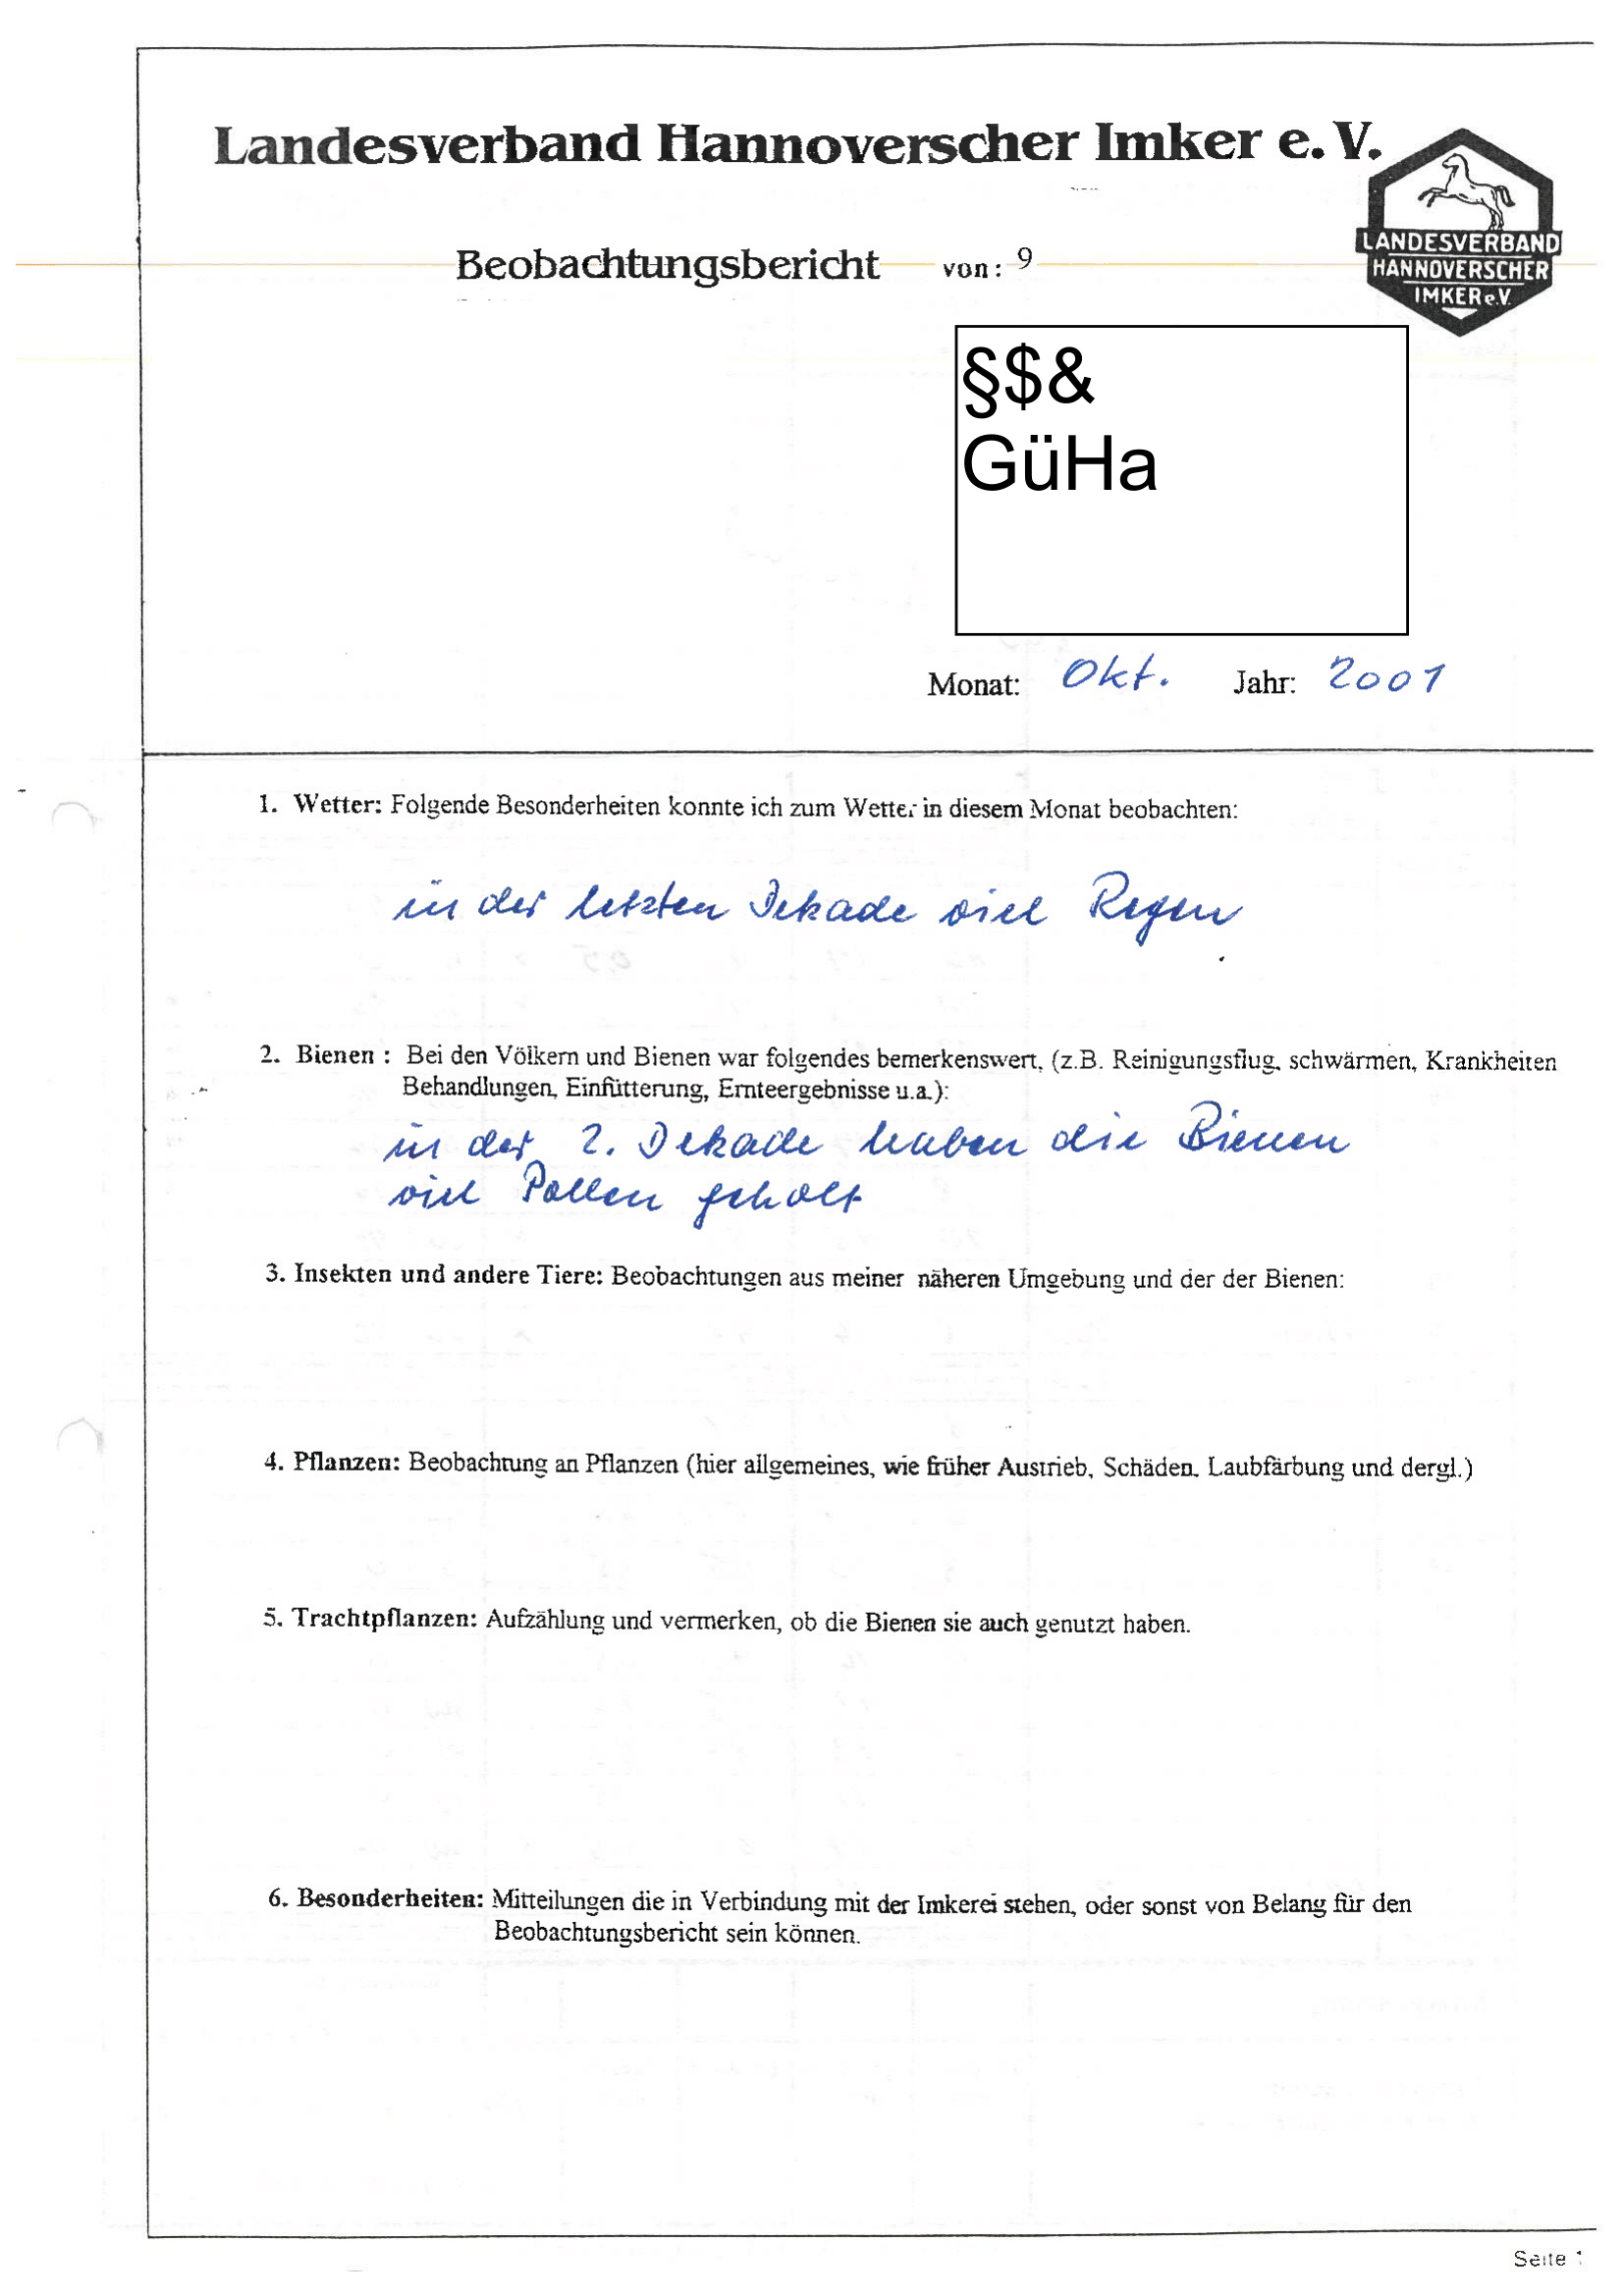 Landesverband Hannoverscher Imker e. V.
LANDESVERBAND
HANNOVERSCHER
IMKER e.V.
Beobachtungsbericht von: 9
§$&
GüHa
Monat: Okt. Jahr: 2001
1. Wetter: Folgende Besonderheiten konnte ich zum Wetter in diesem Monat beobachten:
in der letzten Dekade viel Regen
2. Bienen : Bei den Völkern und Bienen war folgendes bemerkenswert, (z.B. Reinigungsflug, schwärmen, Krankheiten
Behandlungen, Einfütterung, Ernteergebnisse u.a.):
in der 2. Dekade haben die Bienen
viel Pollen geholt
3. Insekten und andere Tiere: Beobachtungen aus meiner näheren Umgebung und der der Bienen:
4. Pflanzen: Beobachtung an Pflanzen (hier allgemeines, wie früher Austrieb, Schäden, Laubfärbung und dergl.)
5. Trachtpflanzen: Aufzählung und vermerken, ob die Bienen sie auch genutzt haben.
6. Besonderheiten: Mitteilungen die in Verbindung mit der Imkerei stehen, oder sonst von Belang für den
Beobachtungsbericht sein können.
Seite 1